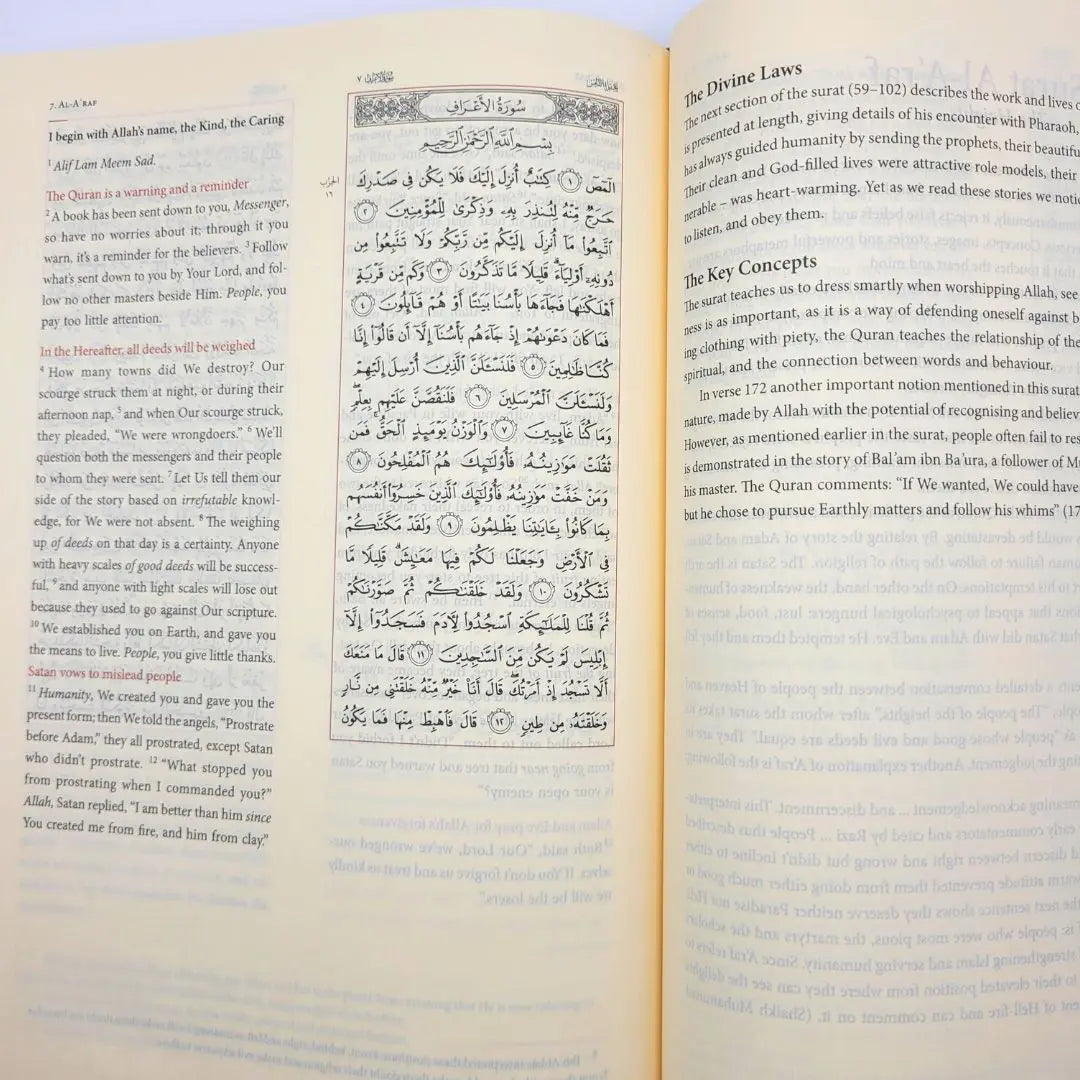 7. AL-A'RAF
I begin with Allah's name, the Kind, the Caring
1 Alif Lam Meem Sad.
The Quran is a warning and a reminder
2 A book has been sent down to you, Messenger,
so have no worries about it; through it you
warn, it's a reminder for the believers. 3 Follow
what's sent down to you by Your Lord, and fol-
low no other masters beside Him. People, you
pay too little attention.
In the Hereafter, all deeds will be weighed
4 How many towns did We destroy? Our
scourge struck them at night, or during their
afternoon nap, 5 and when Our scourge struck,
they pleaded, "We were wrongdoers." 6 We'll
question both the messengers and their people
to whom they were sent. 7 Let Us tell them our
side of the story based on irrefutable knowl-
edge, for We were not absent. 8 The weighing
up of deeds on that day is a certainty. Anyone
with heavy scales of good deeds will be success-
ful, 9 and anyone with light scales will lose out
because they used to go against Our scripture.
10 We established you on Earth, and gave you
the means to live. People, you give little thanks.
Satan vows to mislead people
11 Humanity, We created you and gave you the
present form; then We told the angels, "Prostrate
before Adam," they all prostrated, except Satan
who didn't prostrate. 12 "What stopped you
from prostrating when I commanded you?"
Allah, Satan replied, "I am better than him since
You created me from fire, and him from clay."
سُورَةُ الأَعْرَافِ ٧
سُورَةُ الأَعْرَافِ
بِسْمِ اللَّهِ الرَّحْمَٰنِ الرَّحِيمِ
الحزب
١٦
الٓمٓصٓ ١ كِتَٰبٌ أُنزِلَ إِلَيْكَ فَلَا يَكُن فِى صَدْرِكَ
حَرَجٌ مِّنْهُ لِتُنذِرَ بِهِۦ وَذِكْرَىٰ لِلْمُؤْمِنِينَ ٢
ٱتَّبِعُوا۟ مَآ أُنزِلَ إِلَيْكُم مِّن رَّبِّكُمْ وَلَا تَتَّبِعُوا۟ مِن
دُونِهِۦٓ أَوْلِيَآءَ ۗ قَلِيلًا مَّا تَذَكَّرُونَ ٣ وَكَم مِّن قَرْيَةٍ
أَهْلَكْنَٰهَا فَجَآءَهَا بَأْسُنَا بَيَٰتًا أَوْ هُمْ قَآئِلُونَ ٤
فَمَا كَانَ دَعْوَىٰهُمْ إِذْ جَآءَهُم بَأْسُنَآ إِلَّآ أَن قَالُوٓا۟ إِنَّا
كُنَّا ظَٰلِمِينَ ٥ فَلَنَسْـَٔلَنَّ ٱلَّذِينَ أُرْسِلَ إِلَيْهِمْ
وَلَنَسْـَٔلَنَّ ٱلْمُرْسَلِينَ ٦ فَلَنَقُصَّنَّ عَلَيْهِم بِعِلْمٍ ۖ
وَمَا كُنَّا غَآئِبِينَ ٧ وَٱلْوَزْنُ يَوْمَئِذٍ ٱلْحَقُّ ۚ فَمَن
ثَقُلَتْ مَوَٰزِينُهُۥ فَأُو۟لَٰٓئِكَ هُمُ ٱلْمُفْلِحُونَ ٨
وَمَنْ خَفَّتْ مَوَٰزِينُهُۥ فَأُو۟لَٰٓئِكَ ٱلَّذِينَ خَسِرُوٓا۟ أَنفُسَهُم
بِمَا كَانُوا۟ بِـَٔايَٰتِنَا يَظْلِمُونَ ٩ وَلَقَدْ مَكَّنَّٰكُمْ
فِى ٱلْأَرْضِ وَجَعَلْنَا لَكُمْ فِيهَا مَعَٰيِشَ ۗ قَلِيلًا مَّا
تَشْكُرُونَ ١٠ وَلَقَدْ خَلَقْنَٰكُمْ ثُمَّ صَوَّرْنَٰكُمْ
ثُمَّ قُلْنَا لِلْمَلَٰٓئِكَةِ ٱسْجُدُوا۟ لِـَٔادَمَ فَسَجَدُوٓا۟ إِلَّآ
إِبْلِيسَ لَمْ يَكُن مِّنَ ٱلسَّٰجِدِينَ ١١ قَالَ مَا مَنَعَكَ
أَلَّا تَسْجُدَ إِذْ أَمَرْتُكَ ۖ قَالَ أَنَا۠ خَيْرٌ مِّنْهُ خَلَقْتَنِى مِن نَّارٍ
وَخَلَقْتَهُۥ مِن طِينٍ ١٢ قَالَ فَٱهْبِطْ مِنْهَا فَمَا يَكُونُ
The Divine Laws
The next section of the surat (59–102) describes the work and lives
is presented at length, giving details of his encounter with Pharaoh,
has always guided humanity by sending the prophets, their beautiful
Their clean and God-filled lives were attractive role models, their
nerable – was heart-warming. Yet as we read these stories we
to listen, and obey them.
The Key Concepts
The surat teaches us to dress smartly when worshipping Allah,
ness is as important, as it is a way of defending oneself against
ing clothing with piety, the Quran teaches the relationship of the
spiritual, and the connection between words and behaviour.
In verse 172 another important notion mentioned in this surat
nature, made by Allah with the potential of recognising and
However, as mentioned earlier in the surat, people often fail to
is demonstrated in the story of Bal'am ibn Ba'ura, a follower of
his master. The Quran comments: "If We wanted, We could have
but he chose to pursue Earthly matters and follow his whims"